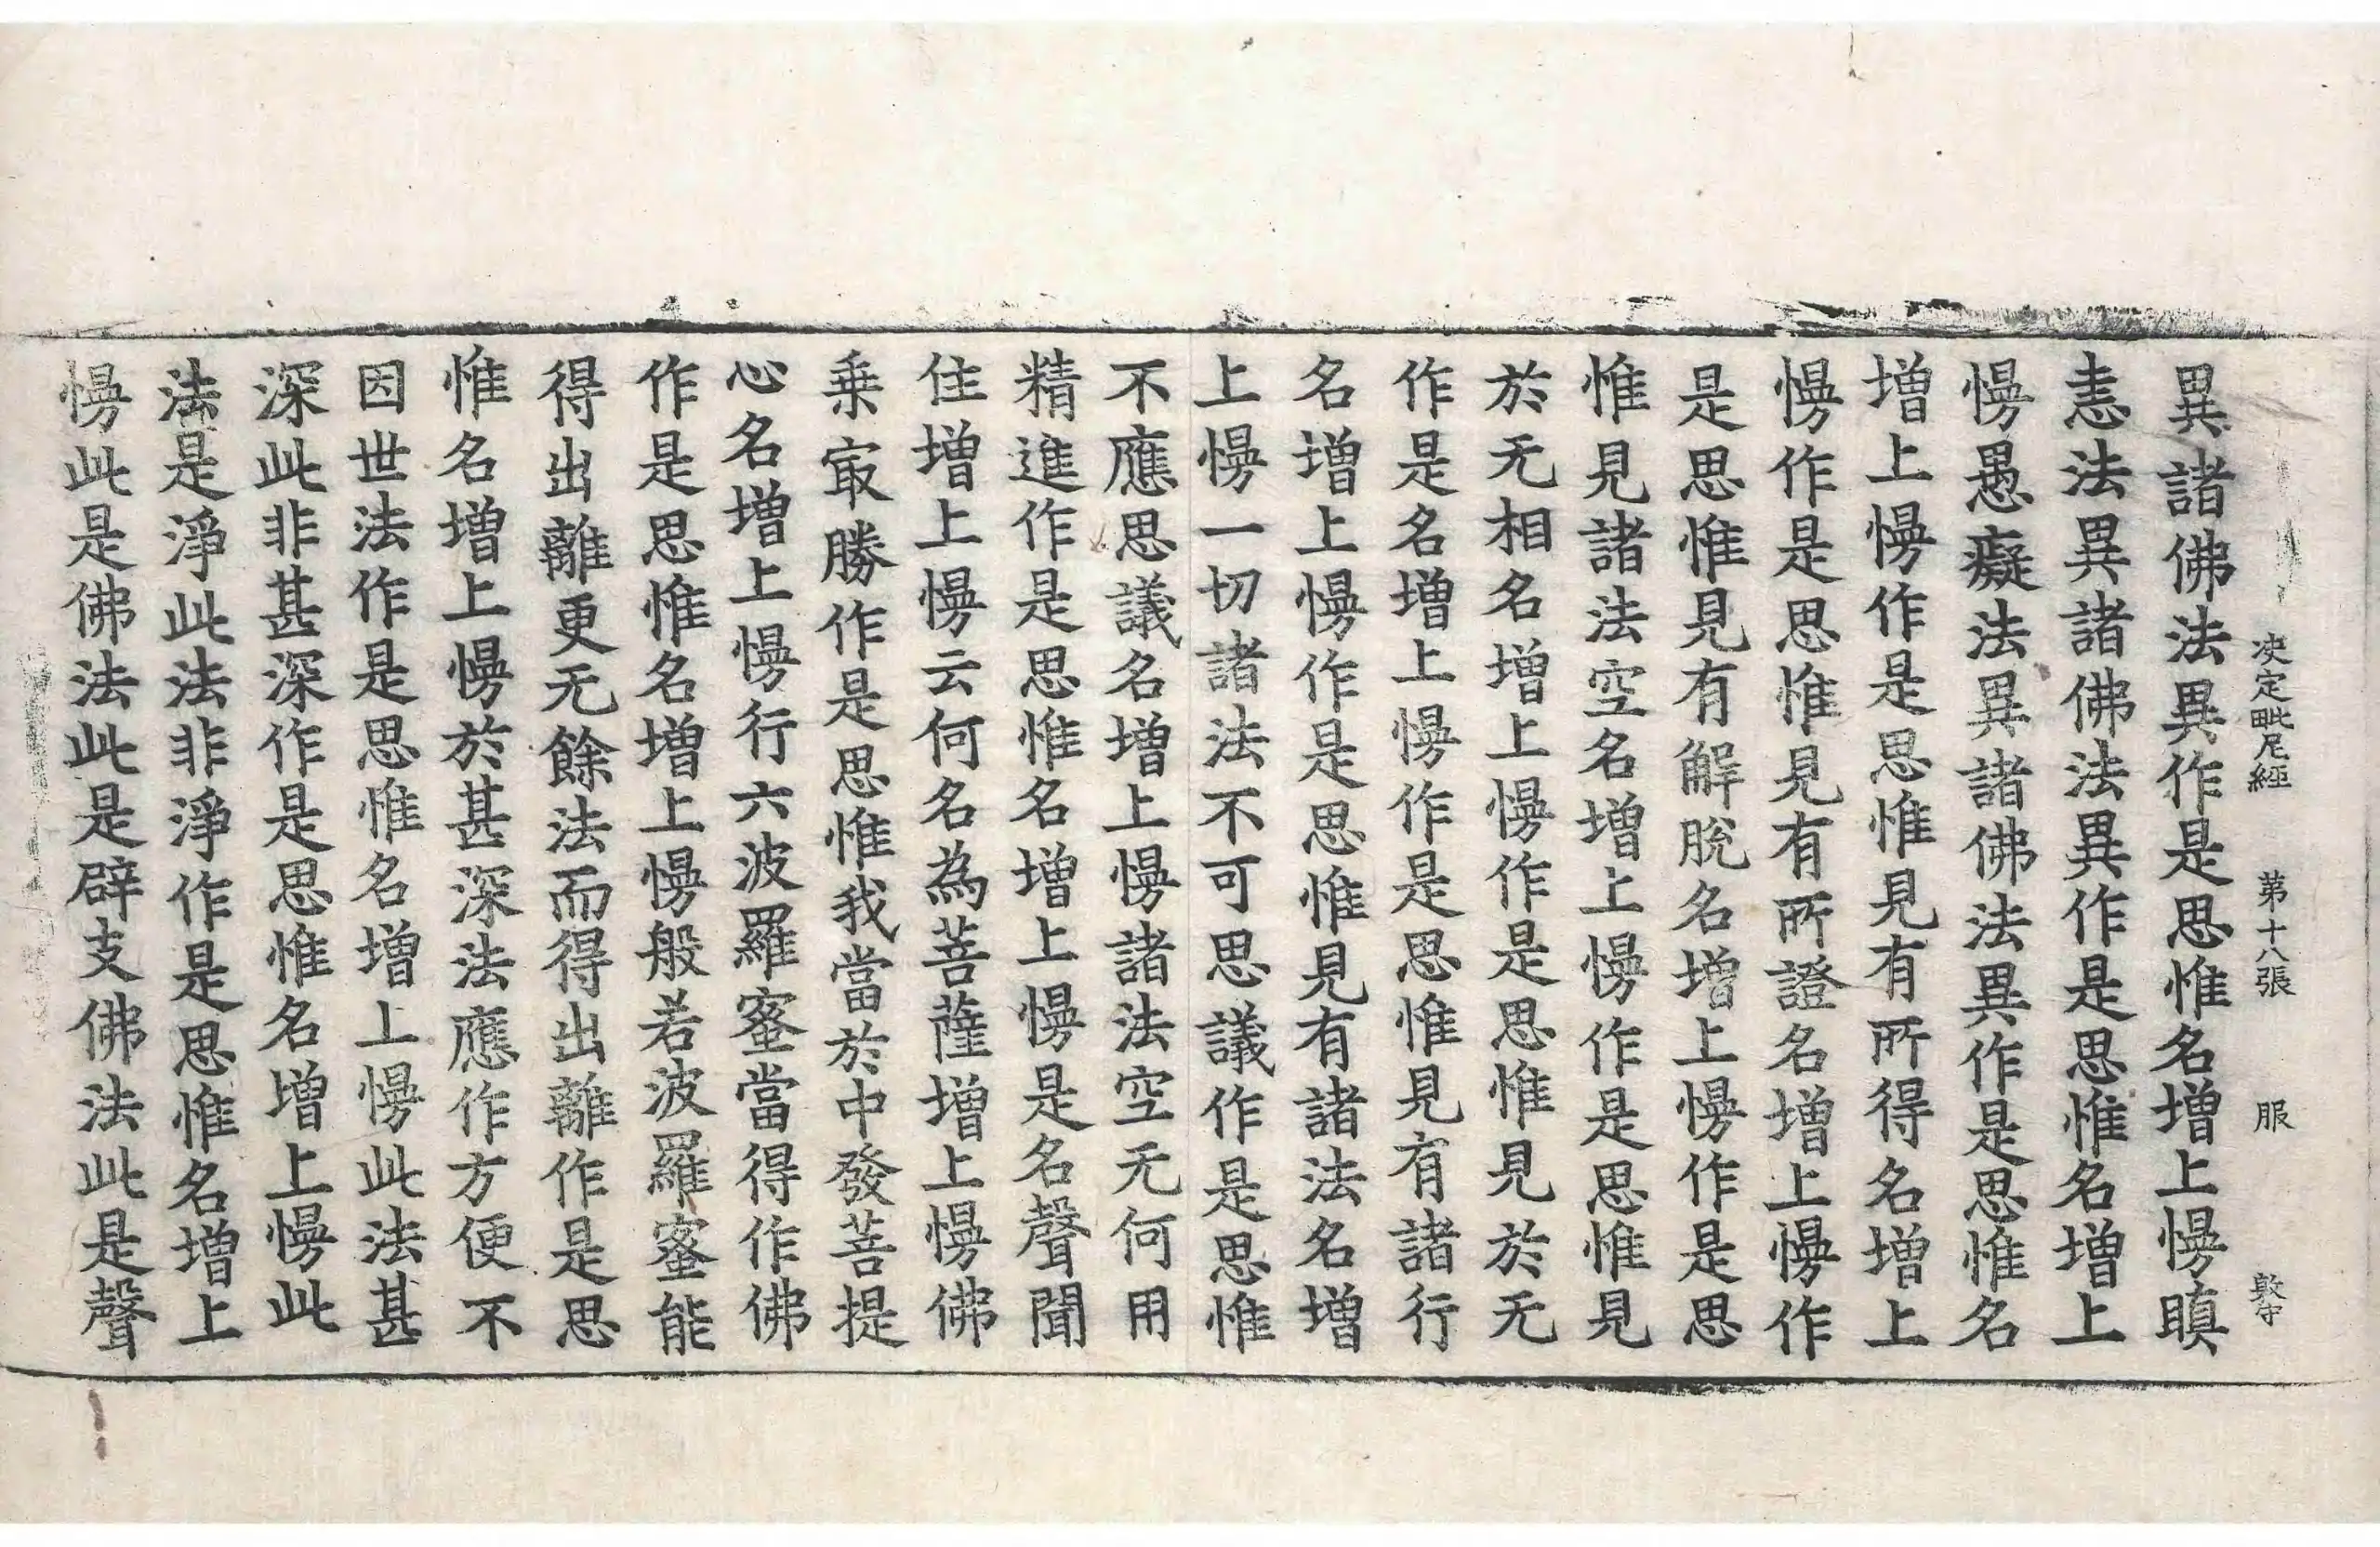 決定毗尼經 第十八張 服 敦守
異諸佛法異作是思惟名增上慢瞋
恚法異諸佛法異作是思惟名增上
慢愚癡法異諸佛法異作是思惟名
增上慢作是思惟見有所得名增上
慢作是思惟見有所證名增上慢作
是思惟見有解脫名增上慢作是思
惟見諸法空名增上慢作是思惟見
於无相名增上慢作是思惟見於无
作是名增上慢作是思惟見有諸行
名增上慢作是思惟見有諸法名增
上慢一切諸法不可思議作是思惟
不應思議名增上慢諸法空无何用
精進作是思惟名增上慢是名聲聞
住增上慢云何名為菩薩增上慢佛
乗㝡勝作是思惟我當於中發菩提
心名增上慢行六波羅蜜當得作佛
作是思惟名增上慢般若波羅蜜能
得出離更无餘法而得出離作是思
惟名增上慢於甚深法應作方便不
因世法作是思惟名增上慢此法甚
深此非甚深作是思惟名增上慢此
法是淨此法非淨作是思惟名增上
慢此是佛法此是辟支佛法此是聲